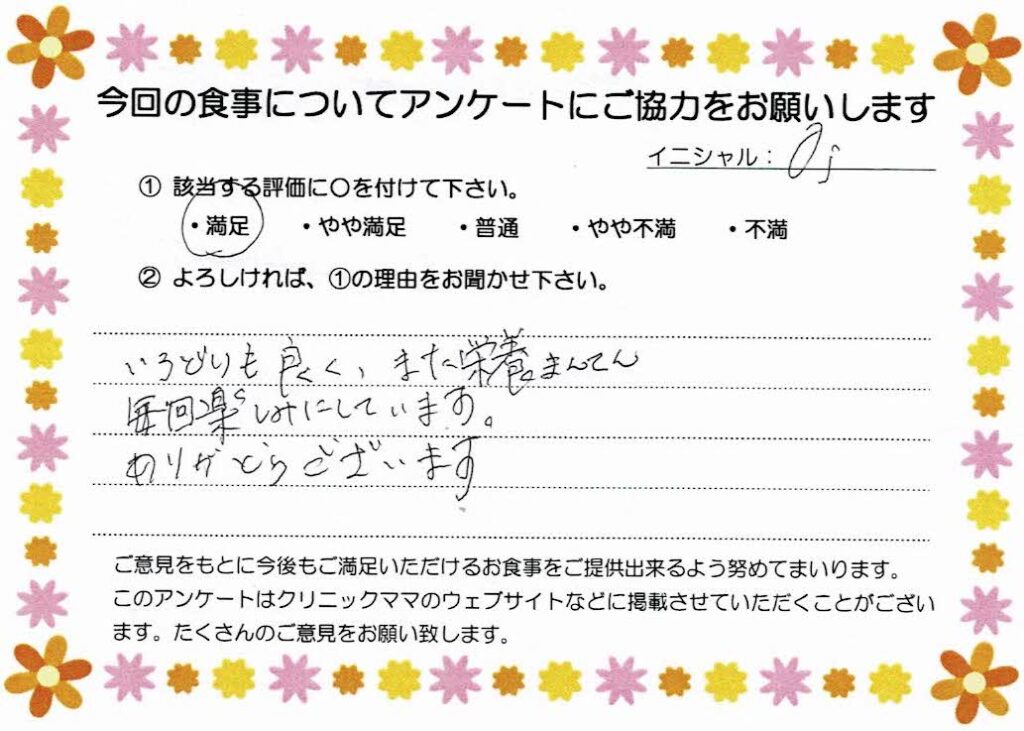 今回の食事についてアンケートにご協力をお願いします
イニシャル：O j
① 該当する評価に〇を付けて下さい。
・満足　・やや満足　・普通　・やや不満　・不満
② よろしければ、①の理由をお聞かせ下さい。
いろどりも良く、また栄養まんてん
毎回楽しみにしています。
ありがとうございます
ご意見をもとに今後もご満足いただけるお食事をご提供出来るよう努めてまいります。
このアンケートはクリニックママのウェブサイトなどに掲載させていただくことがござい
ます。たくさんのご意見をお願い致します。